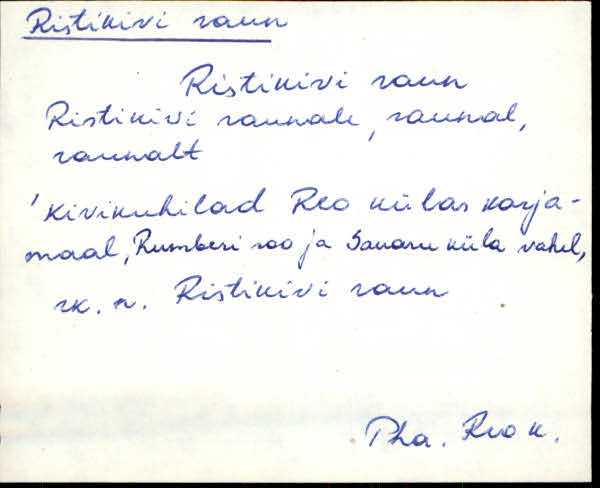 Ristikivi raun
Ristikivi raun
Ristikivi raunale, raunal,
raunalt
'kivikuhilad Reo külas karja-
maal, Rumberi soo ja Sakaru küla vahel,
rk. n. Ristikivi raun
Pha. Reo k.